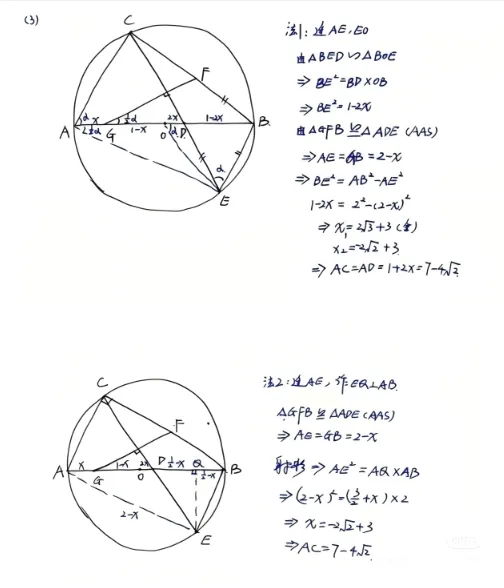 (3)
C
F
A
α
x
½α
½α
G
1-x
2x
O
½α
D
1-2x
B
α
E
法1: 连AE, EO
由△BED∽△BOE
⇒ BE²=BD×OB
⇒ BE²=1-2x
由△GFB≌△ADE (AAS)
⇒ AE=GB=2-x
⇒ BE²=AB²-AE²
1-2x = 2²-(2-x)²
⇒ x₁=2√3+3 (舍)
x₂=-2√2+3
⇒ AC=AD=1+2x=7-4√2
C
F
A
x
G
1-x
O
2x
D
½-x
Q
½-x
B
2-x
E
法2: 连AE, 作EQ⊥AB
△GFB≌△ADE(AAS)
⇒ AE=GB=2-x
射影 ⇒ AE²=AQ×AB
⇒ (2-x)²=(3/2+x)×2
⇒ x=-2√2+3
⇒ AC=7-4√2